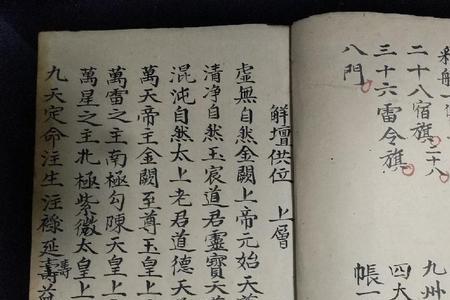 八門
三十六雷令旗
二十八宿旗二十八
九州
四大
帳一
鮮壇供位 上層
虛無自然金闕上帝元始天尊
清净自然玉宸道君靈寶天
混沌自然太上老君道德天
萬天帝主金闕至尊玉皇上
萬雷之主南極勾陳天皇上
萬星之主北極紫微太皇上
九天定命注生注祿延壽益